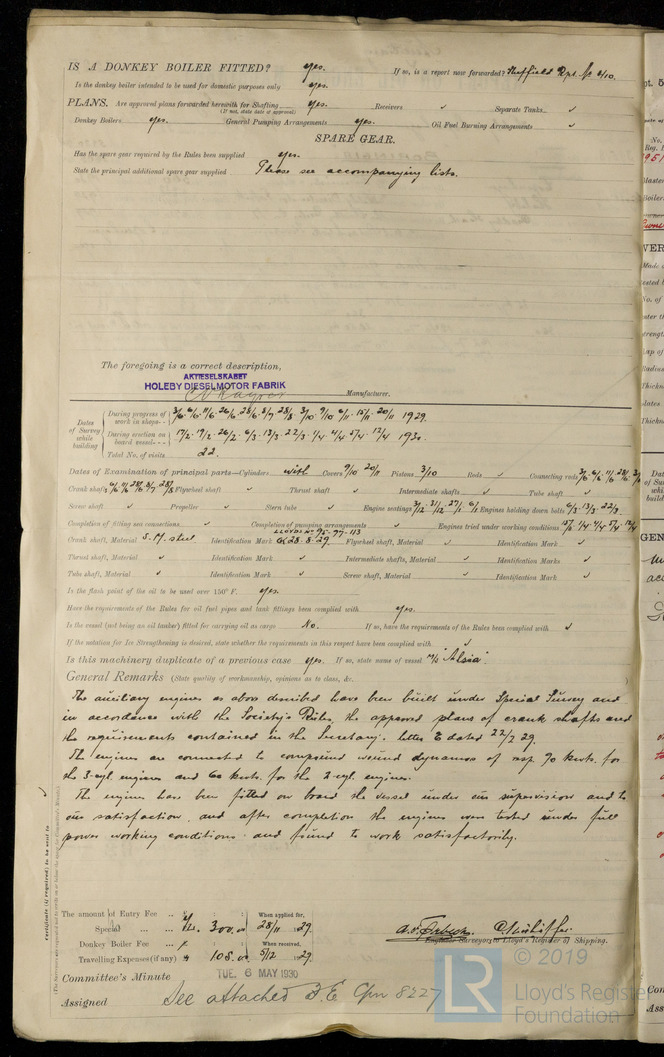 IS A DONKEY BOILER FITTED? yes. If so, is a report now forwarded? Sheffield Rpt. No 410.
Is the donkey boiler intended to be used for domestic purposes only yes.
PLANS. Are approved plans forwarded herewith for Shafting yes. Receivers ✓ Separate Tanks ✓
(If not, state date of approval)
Donkey Boilers yes. General Pumping Arrangements yes. Oil Fuel Burning Arrangements ✓
SPARE GEAR.
Has the spare gear required by the Rules been supplied yes.
State the principal additional spare gear supplied Please see accompanying lists.
The foregoing is a correct description,
AKTIESELSKABET
HOLEBY DIESELMOTOR FABRIK
Manufacturer.
Dates of Survey while building
During progress of work in shops - - 1929.
During erection on board vessel - - - 17/2. 19/2. 26/2. 6/3. 13/3. 22/3. 1/4 4/4. 5/4. 12/4 1930.
Total No. of visits 22.
Dates of Examination of principal parts—Cylinders with Covers 9/10 20/11 Pistons 3/10 Rods ✓ Connecting rods
Crank shaft Flywheel shaft ✓ Thrust shaft ✓ Intermediate shafts ✓ Tube shaft ✓
Screw shaft ✓ Propeller ✓ Stern tube ✓ Engine seatings Engines holding down bolts 6/3. 13/3. 22/3.
Completion of fitting sea connections ✓ Completion of pumping arrangements ✓ Engines tried under working conditions
LLOYDS Nº 95-97-113
Crank shaft, Material S.M. steel Identification Mark 28-8-29 Flywheel shaft, Material ✓ Identification Mark ✓
Thrust shaft, Material ✓ Identification Mark ✓ Intermediate shafts, Material ✓ Identification Marks ✓
Tube shaft, Material ✓ Identification Mark ✓ Screw shaft, Material ✓ Identification Mark ✓
Is the flash point of the oil to be used over 150° F. yes.
Have the requirements of the Rules for oil fuel pipes and tank fittings been complied with yes.
Is the vessel (not being an oil tanker) fitted for carrying oil as cargo No. If so, have the requirements of the Rules been complied with ✓
If the notation for Ice Strengthening is desired, state whether the requirements in this respect have been complied with ✓
Is this machinery duplicate of a previous case yes. If so, state name of vessel M/S "Alsia".
General Remarks (State quality of workmanship, opinions as to class, &c.
The auxiliary engines as above described have been built under Special Survey and
in accordance with the Society's Rules, the approved plans of crank shafts and
the requirements contained in the Secretary's letter E dated 22/2 29.
The engines are connected to compound wound dynamos of resp 90 kwts. for
the 3-cyl. engines and 60 kwts. for the 2-cyl. engines.
The engines have been fitted on board the vessel under our supervision and to
our satisfaction, and after completion the engines were tested under full
power working conditions and found to work satisfactorily.
Certificate (if required) to be sent to
The amount of Entry Fee ..
Special ... Kr. 300.00
Donkey Boiler Fee ...
Travelling Expenses (if any) 108.00
When applied for, 28/11 1929
When received, 5/12 1929
Engineer Surveyor to Lloyd's Register of Shipping.
Committee's Minute TUE. 6 MAY 1930
Assigned See attached F.E. Cpn 8227
© 2019
LR
Lloyd's Register
Foundation